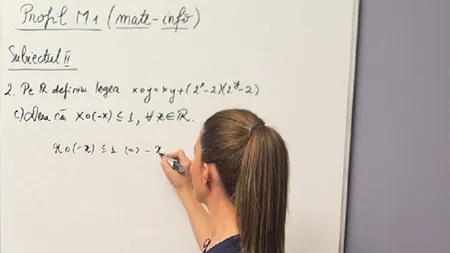 Profil M1 (mate-info)
Subiectul II
2. Pe ℝ definim legea x∘y=xy+(2ˣ-2)(2ʸ-2)
c) Dem că x∘(-x) ≤ 1, ∀x∈ℝ.
x∘(-x) ≤ 1 (=) -x